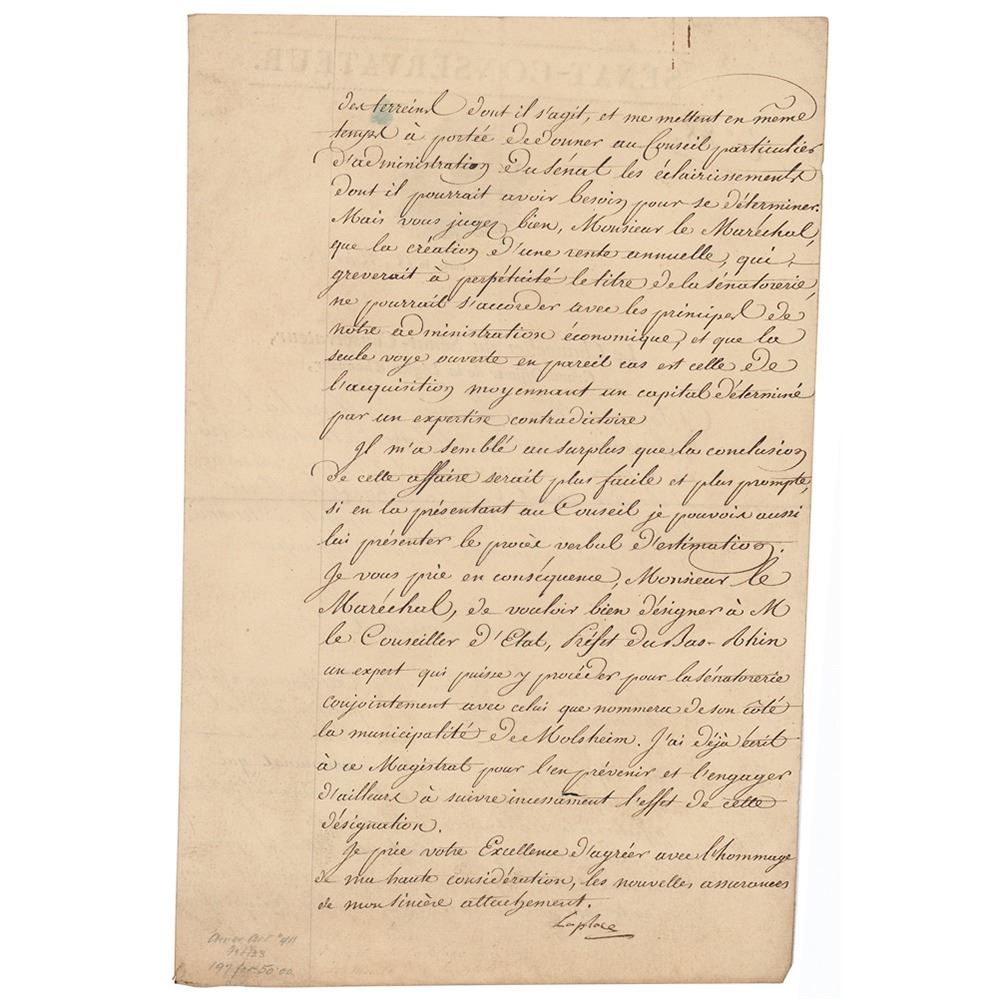 SÉNAT-CONSERVATEUR.
des terreins dont il s'agit, et me mettent en même
temps à portée de donner au Conseil particulier
d'administration du Sénat les éclaircissements
dont il pourrait avoir besoin pour se déterminer.
Mais vous jugez bien, Monsieur le Maréchal,
que la création d'une rente annuelle, qui
greverait à perpéticité le titre de la sénatorerie,
ne pourrait s'accorder avec les principes de
notre administration économique, et que la
seule voye ouverte en pareil cas est celle de
l'acquisition moyennant un capital déterminé
par un expertise contradictoire
Il m'a semblé au surplus que la conclusion
de cette affaire serait plus facile et plus prompte,
si en la présentant au Conseil je pouvois aussi
lui présenter le procès verbal d'estimation.
Je vous prie en conséquence, Monsieur le
Maréchal, de vouloir bien désigner à M
le Conseiller d'Etat, Préfet du Bas-Rhin
un expert qui puisse y procéder pour la sénatorerie
conjointement avec celui que nommera de son côté
la municipalité de Molsheim. J'ai déjà écrit
à ce Magistrat pour l'en prévenir et l'engager
d'ailleurs à suivre incessament l'effet de cette
désignation.
Je prie votre Excellence d'agréer avec l'hommage
de ma haute considération, les nouvelles assurances
de mon sincère attachement.
Laplace
197 for 50.00